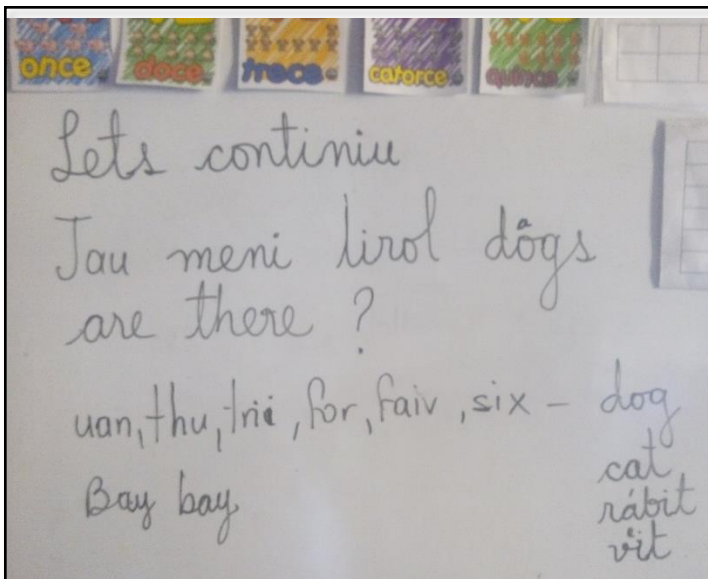 once doce trece catorce quince
Lets continiu
Jau meni lirol dogs
a
are there ?
uan, thu, trii, for, faiv, six - dog
cat
Bay bay
rábit
vit